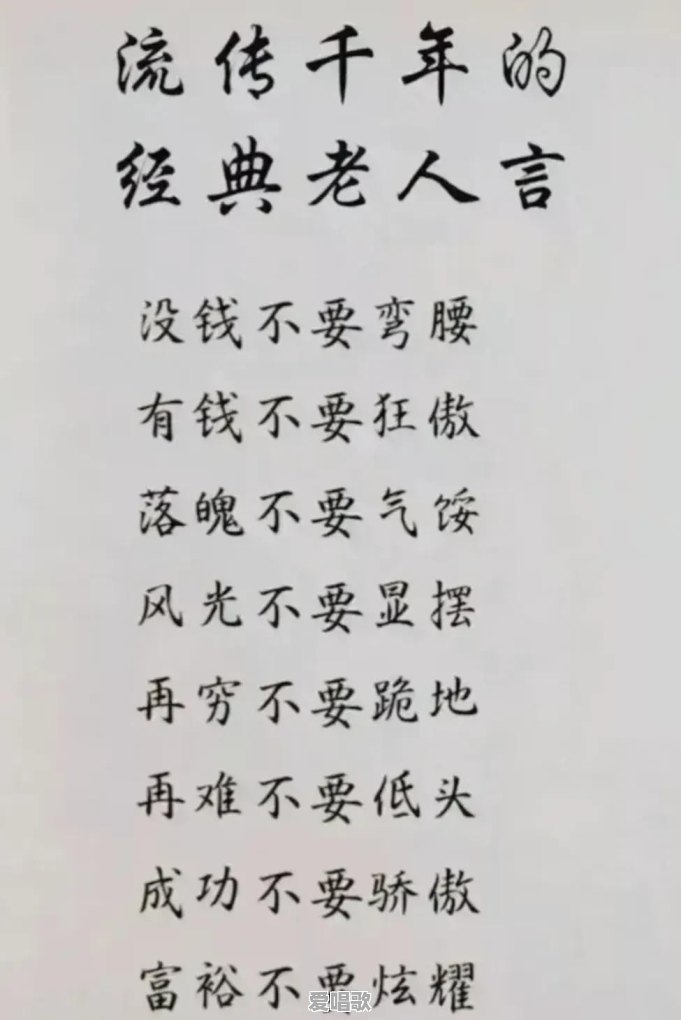 流传千年的
经典老人言
没钱不要弯腰
有钱不要狂傲
落魄不要气馁
风光不要显摆
再穷不要跪地
再难不要低头
成功不要骄傲
富裕不要炫耀
爱唱歌